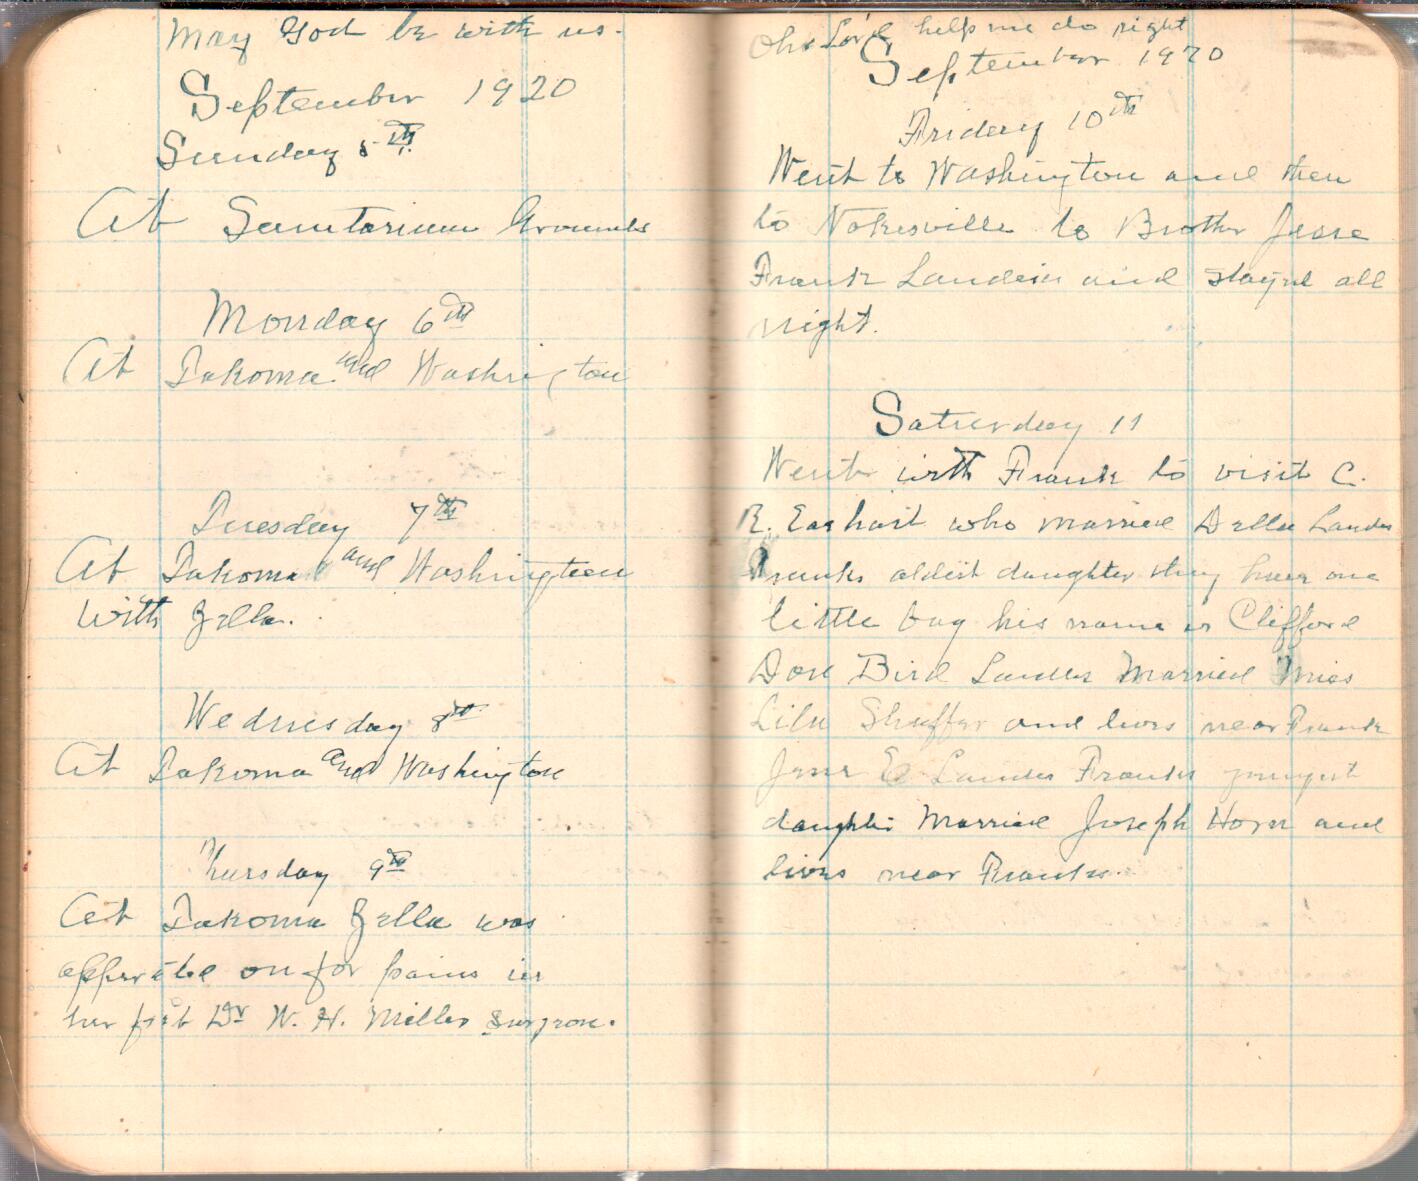 May God be with us.
September 1920
Sunday 5th.
At Sanitarium Grounds
Monday 6th
At Takoma and Washington
Tuesday 7th
At Takoma and Washington
with Zella.
Wednesday 8th
At Takoma and Washington
Thursday 9th
At Takoma Zella was
opperated on for pains in
her feet Dr W. H. Miller surgeon.
Oh Lord help me do right
September 1920
Friday 10th
Went to Washington and then
to Nokesville to Brother Jesse
Frank Landes and stayed all
night.
Saturday 11
Went with Frank to visit C.
R. Earhart who married Della Landes
Franks oldest daughter they have one
little boy his name is Clifford
Don Bird Landes Married Miss
Lila and lives near Frank
E Landes Franks youngest
daughter Married Joseph Horn and
lives near Franks.